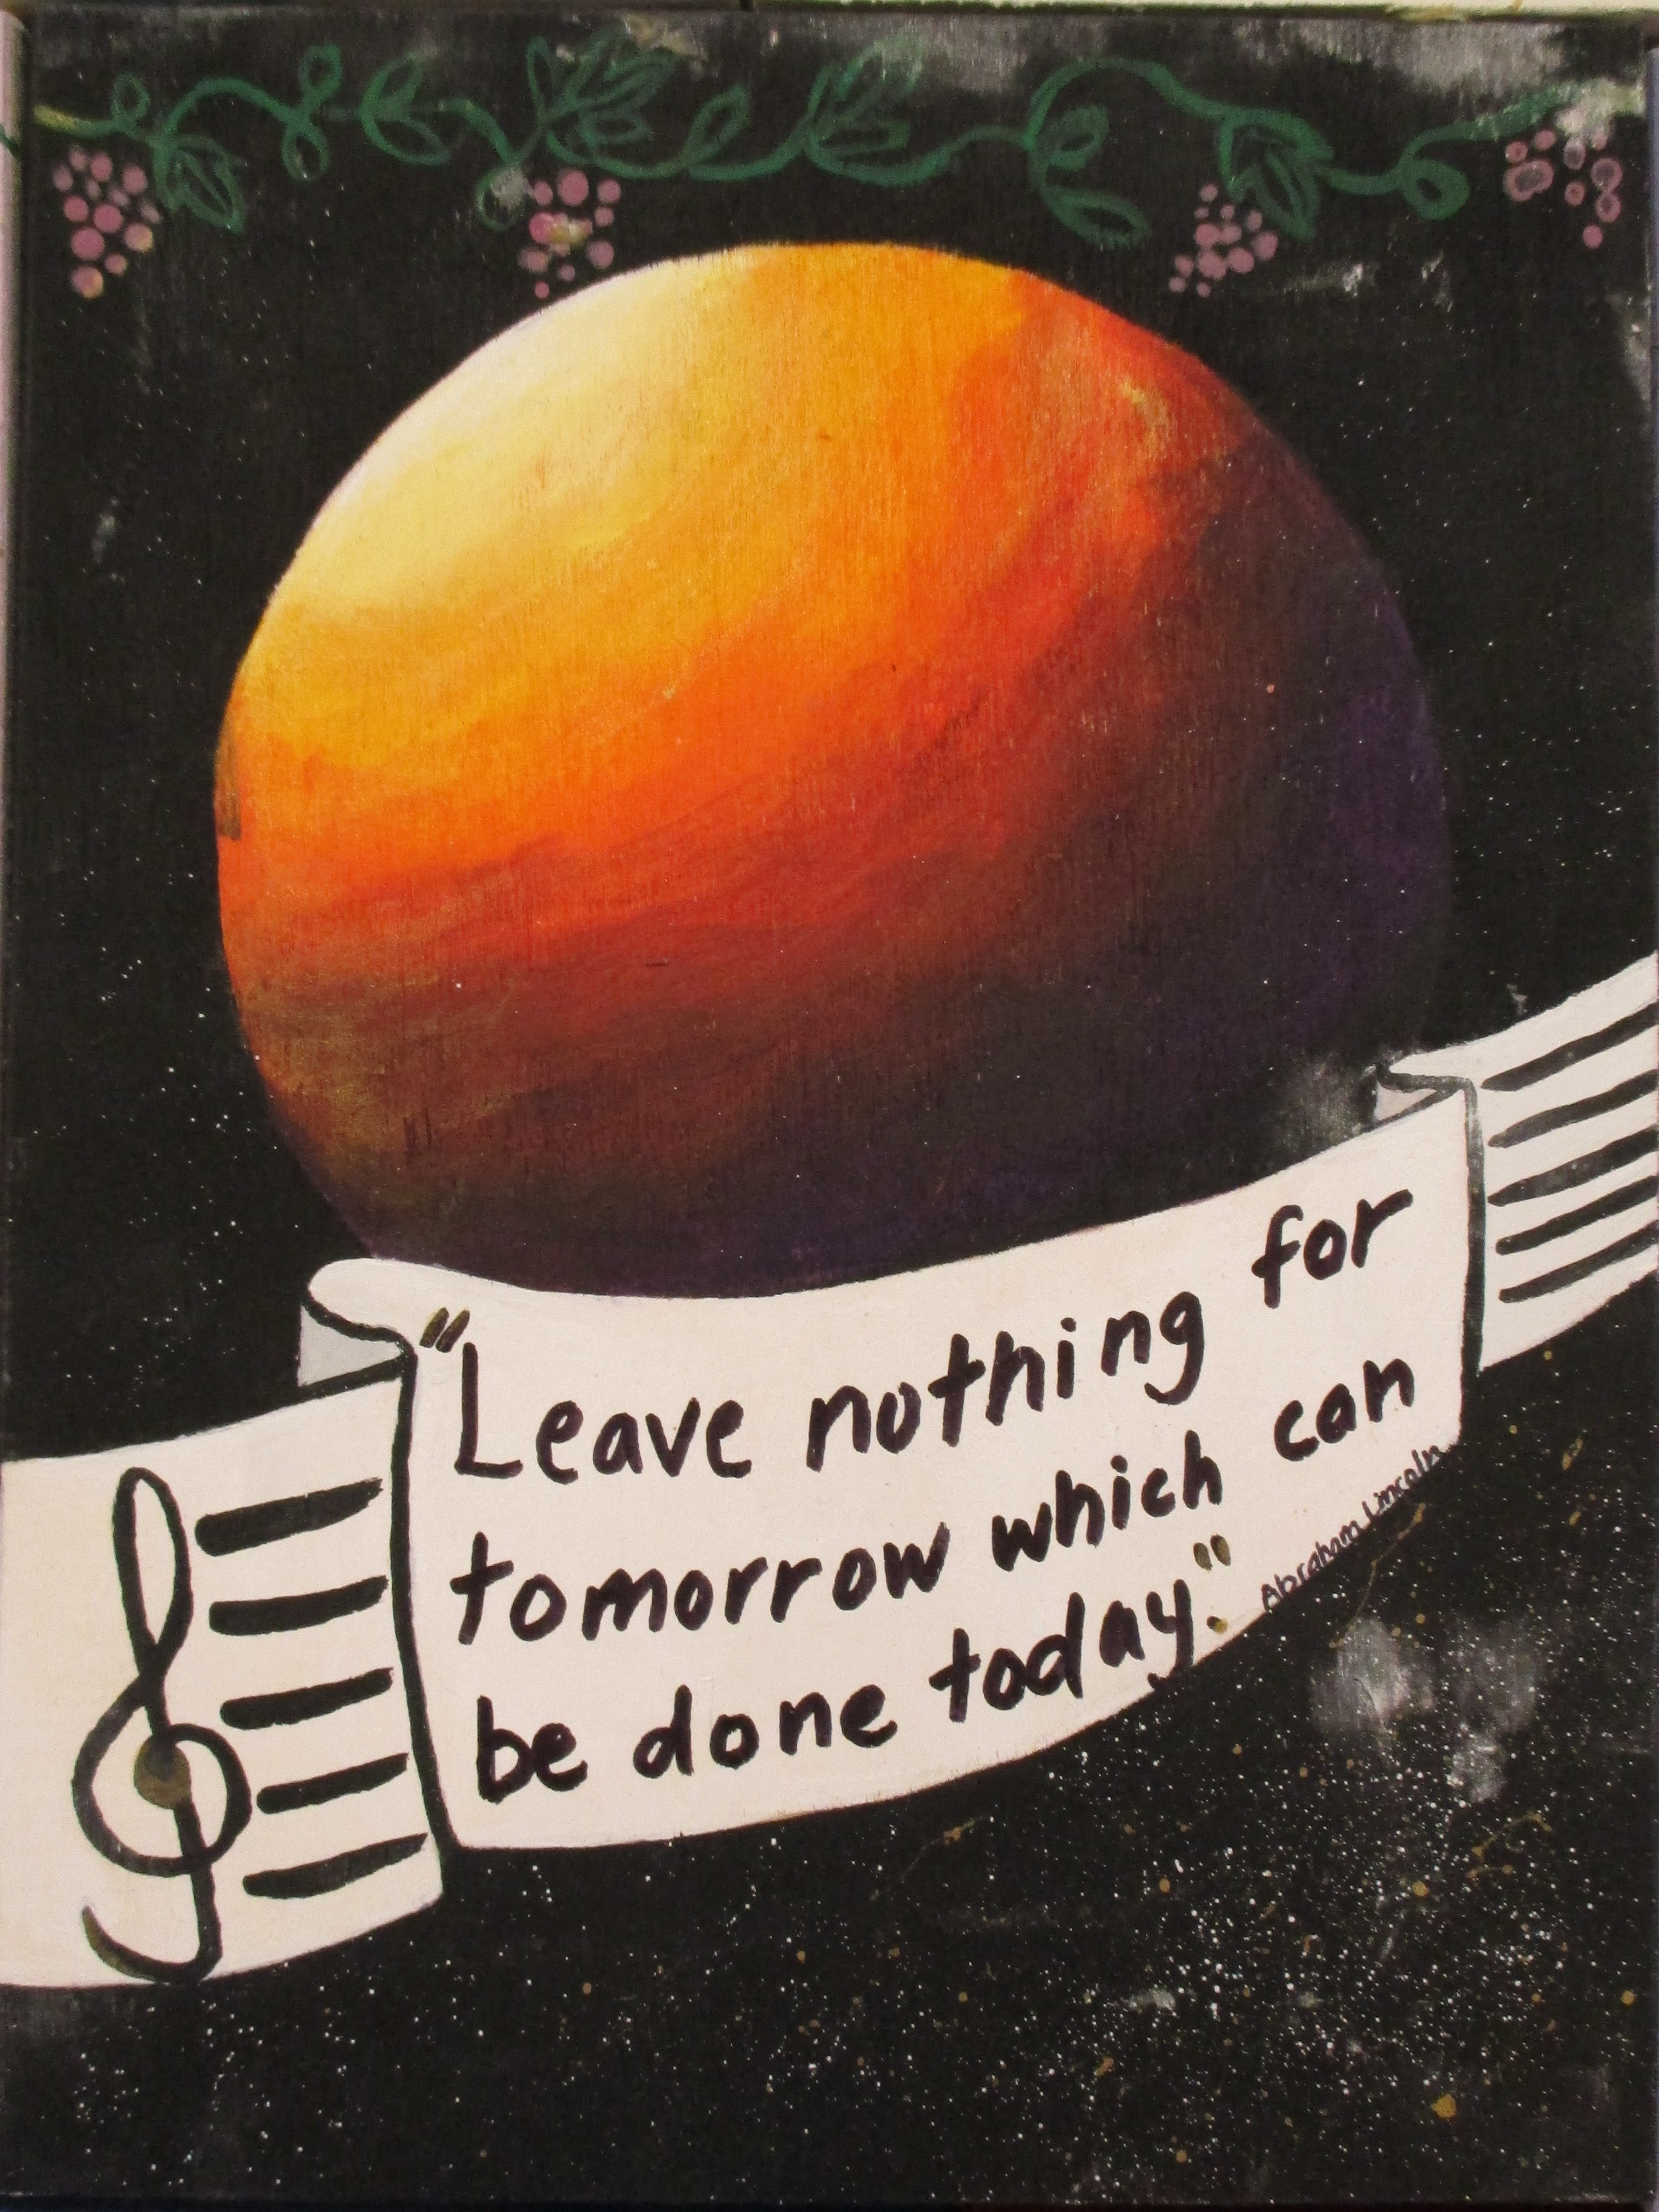 "Leave nothing for
tomorrow which can
be done today."
Abraham Lincoln